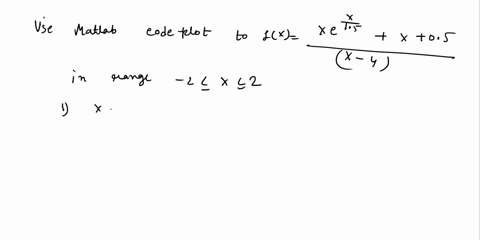 Use Matlab code plot to f(x)= x e^(x/1.5) + x + 0.5 / (x - 4)
in range -2 ≤ x ≤ 2
1) x